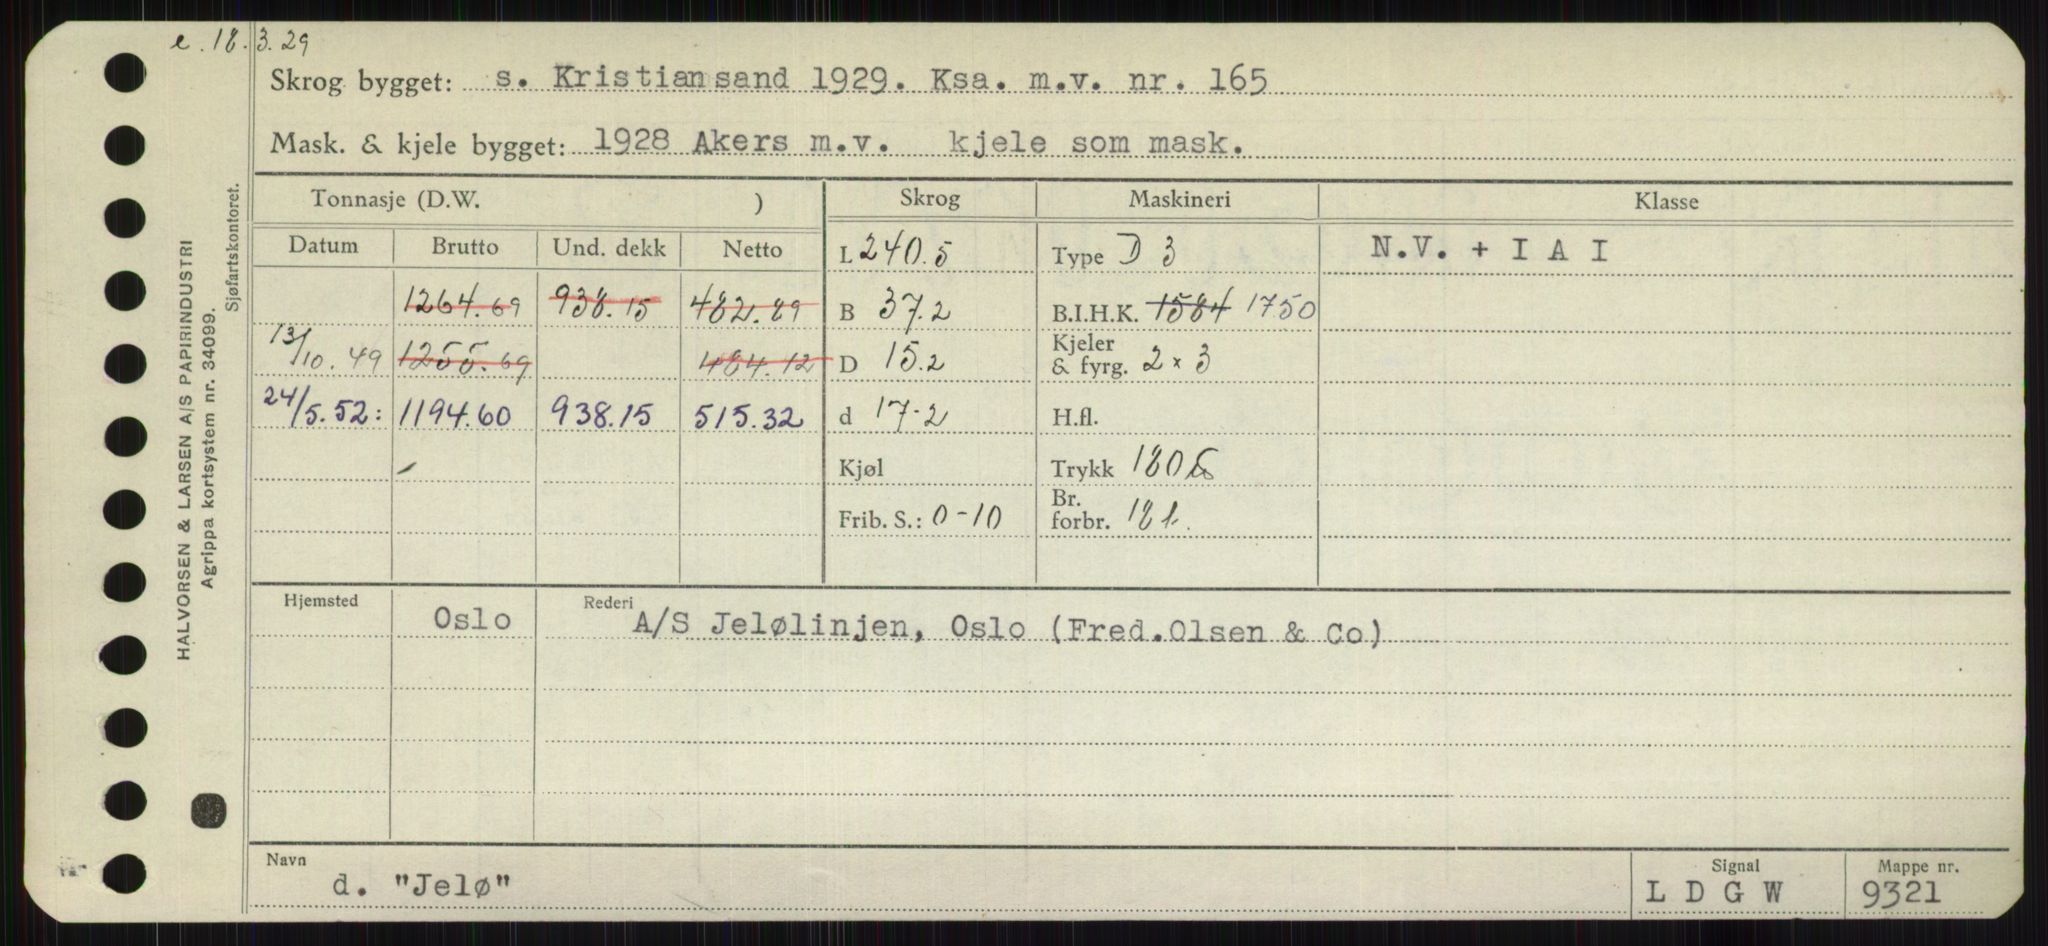 e. 18.3.29
Skrog bygget: s. Kristiansand 1929. Ksa. m.v. nr. 165
Mask. & kjele bygget: 1928 Akers m.v. kjele som mask.
Tonnasje (D.W. ) Skrog Maskineri Klasse
Datum Brutto Und. dekk Netto L 240.5 Type D 3 N.V. + I A I
1264.69 938.15 482.89 B 37.2 B.I.H.K. 1584 1750
13/10.49 1255.69 484.12 D 15.2 Kjeler & fyrg. 2 x 3
24/5.52: 1194.60 938.15 515.32 d 17-2 H.fl.
Kjøl Trykk 180
Frib. S.: 0-10 Br. forbr. 18 t.
Hjemsted Oslo Rederi A/S Jelølinjen, Oslo (Fred.Olsen & Co)
Navn d. "Jelø" Signal L D G W Mappe nr. 9321
HALVORSEN & LARSEN A/S PAPIRINDUSTRI
Agrippa kortsystem nr. 34099.
Sjøfartskontoret.